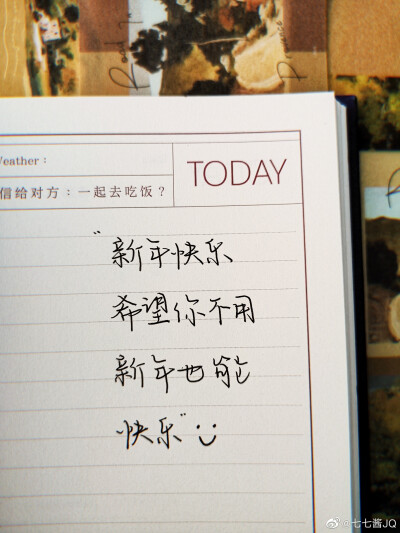 Weather：
TODAY
信给对方：一起去吃饭？
“新年快乐
希望你不用
新年也能
快乐”
@七七酱JQ